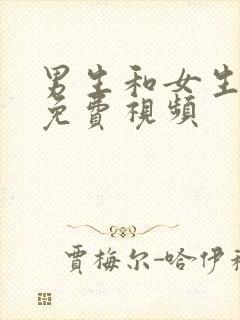 男生和女生
免費視頻
賈梅尔-哈伊